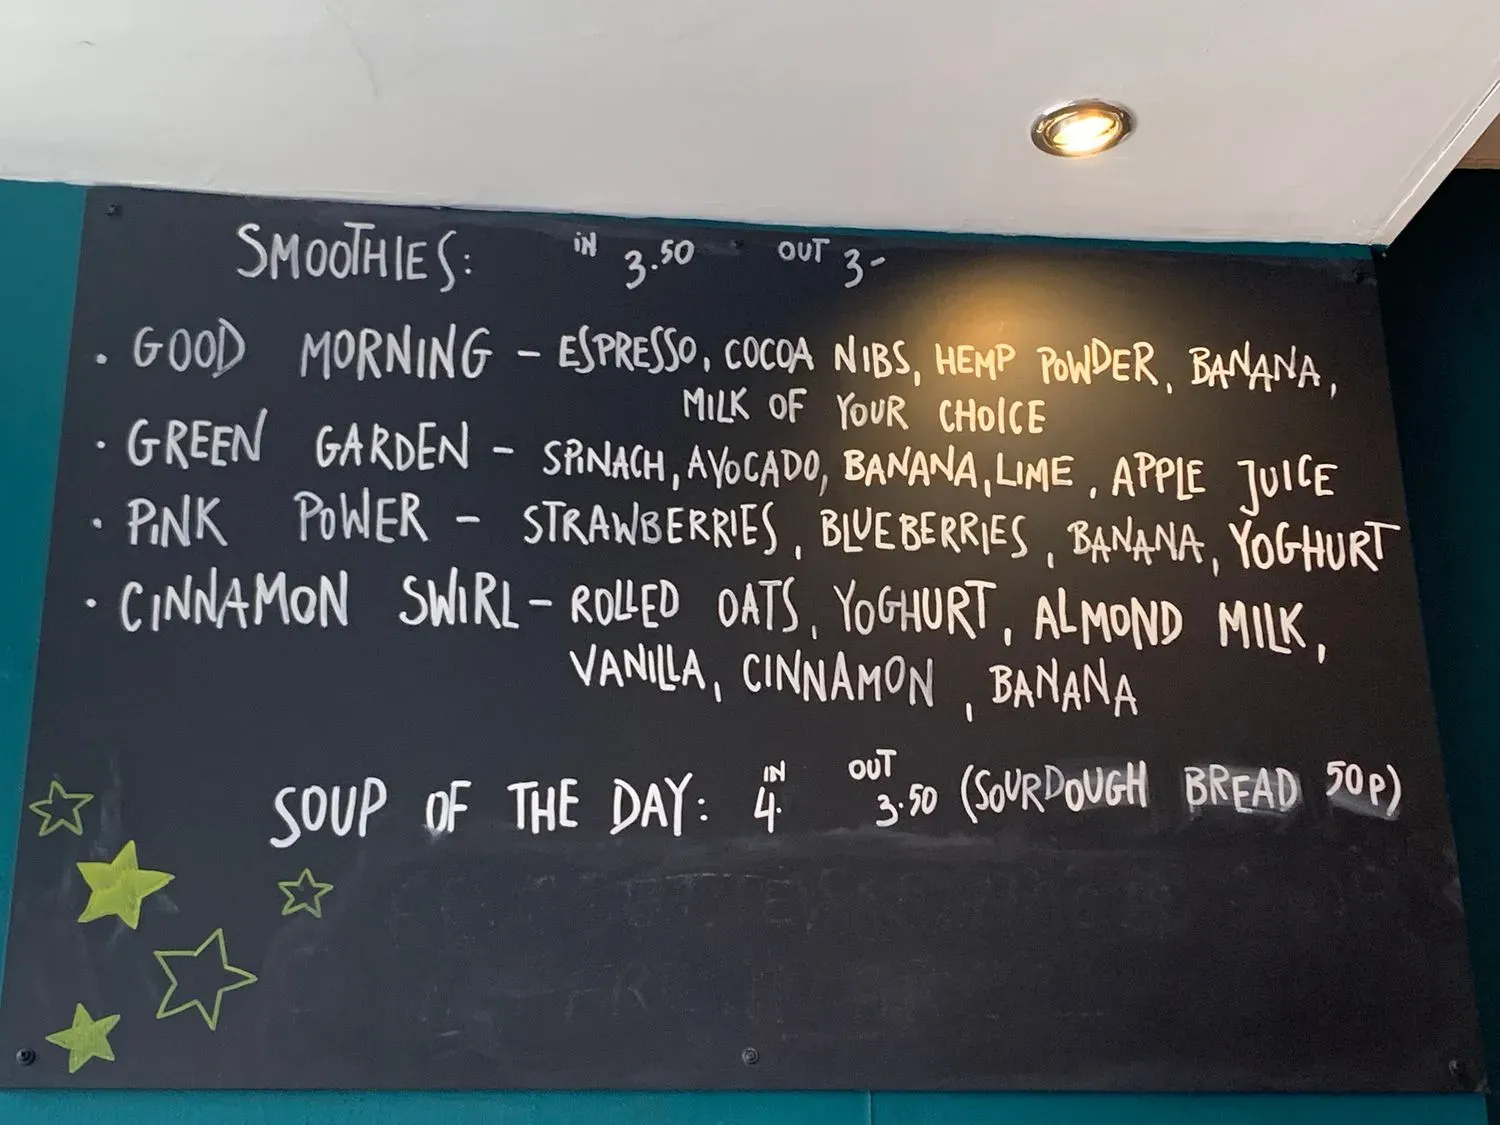 SMOOTHIES: IN 3.50 OUT 3-
• GOOD MORNING - ESPRESSO, COCOA NIBS, HEMP POWDER, BANANA,
MILK OF YOUR CHOICE
• GREEN GARDEN - SPINACH, AVOCADO, BANANA, LIME, APPLE JUICE
• PINK POWER - STRAWBERRIES, BLUEBERRIES, BANANA, YOGHURT
• CINNAMON SWIRL - ROLLED OATS, YOGHURT, ALMOND MILK,
VANILLA, CINNAMON, BANANA
SOUP OF THE DAY: IN 4. OUT 3.50 (SOURDOUGH BREAD 50P)